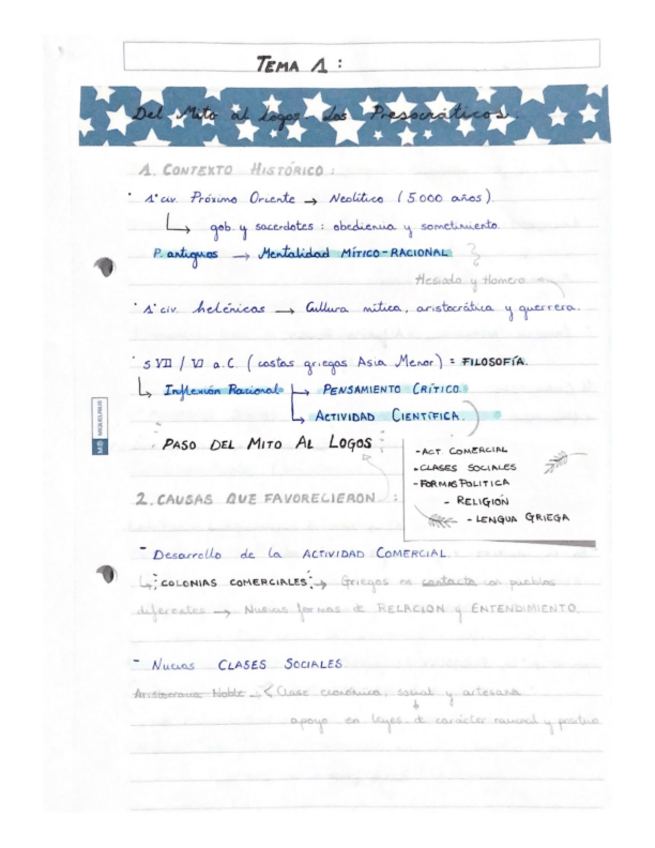 TEMA 1:
Del Mito al Logos. Los Presocráticos.
1. CONTEXTO HISTÓRICO:
1ª civ. Próximo Oriente → Neolítico (5.000 años).
gob. y sacerdotes: obediencia y sometimiento.
P. antiguos → Mentalidad MÍTICO-RACIONAL
Hesiodo y Homero
1ª civ. helénicas → Cultura mítica, aristocrática y guerrera.
S VII / VI a.C (costas griegas Asia Menor) = FILOSOFÍA.
Inflexión Racional → PENSAMIENTO CRÍTICO.
→ ACTIVIDAD CIENTÍFICA.
PASO DEL MITO AL LOGOS
- ACT. COMERCIAL
- CLASES SOCIALES
- FORMAS POLITICA
- RELIGIÓN
- LENGUA GRIEGA
MIQUELRIUS
2. CAUSAS QUE FAVORECIERON:
- Desarrollo de la ACTIVIDAD COMERCIAL.
COLONIAS COMERCIALES: → Griegos en contacto con pueblos
diferentes → Nuevas formas de RELACION y ENTENDIMIENTO.
- Nuevas CLASES SOCIALES
Aristocracia Noble → < Clase económica, social y artesana
apoyo en leyes de carácter racional y positivo